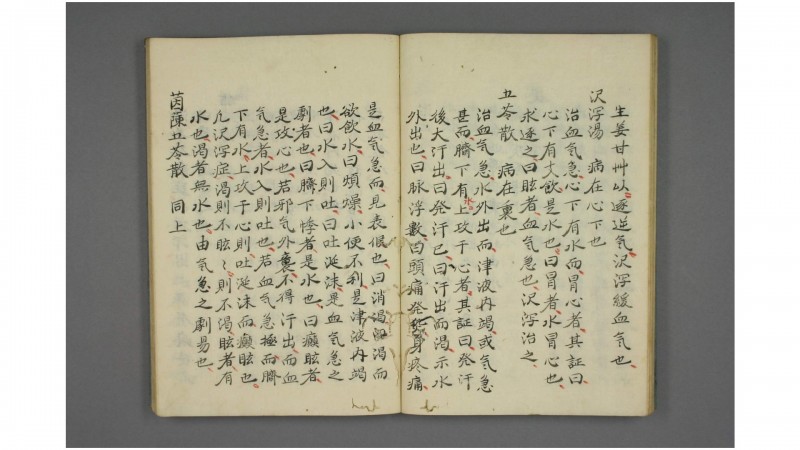 生姜甘艸以逐逆気沢瀉緩血気也
沢瀉湯　病在心下也
治血気急心下有水而冒心者其証曰
心下有支飲是水也曰冒者水冒心也
求逐之曰眩者血気急也沢瀉治之
五苓散　病在裏也
治血気急水外出而津液内竭或気急
甚而臍下有水上攻于心者其証曰発汗
後大汗出曰発汗已曰汗出而渇示水
外出也曰脉浮數曰頭痛発熱身疼痛
是血気急而見表候也曰消渇曰渇而
欲飲水曰煩燥小便不利是津液内竭
也曰水入則吐曰吐涎沫是血気急之
劇者也曰臍下悸者是水也曰癲眩者
是攻心也若邪気外裏不得汗出而血
気急者水入則吐也若血気急極而臍
下有水上攻于心則吐涎沫而癲眩也
凡沢瀉症渇則不眩眩則不渇眩者有
水也渇者無水也由気急之劇易也
茵蔯五苓散　同上